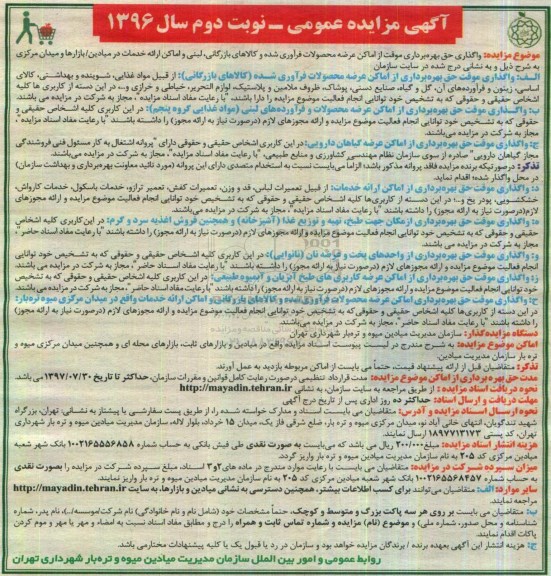 آگهی مزایده عمومی ــ نوبت دوم سال ۱۳۹۶
موضوع مزایده: واگذاری حق بهره‌برداری موقت از اماکن عرضه محصولات فرآوری شده و کالاهای بازرگانی، لبنی و اماکن ارائه خدمات در میادین/بازارها و میدان مرکزی
به شرح ذیل و به نشانی درج شده در سایت سازمان
الف: واگذاری موقت حق بهره‌برداری از اماکن عرضه محصولات فرآوری شده (کالاهای بازرگانی): از قبیل مواد غذایی، شوینده و بهداشتی، کالای
اساسی، زیتون و فرآورده‌های آن، گل و گیاه، صنایع دستی، پوشاک، ظروف ملامین و پلاستیک، لوازم التحریر، خیاطی و خرازی و...؛ در این دسته از کاربری ها کلیه
اشخاص حقیقی و حقوقی که به تشخیص خود توانایی انجام فعالیت موضوع مزایده را دارا باشند، "با رعایت مفاد اسناد مزایده"، مجاز به شرکت در مزایده می‌باشند.
ب: واگذاری موقت حق بهره‌برداری از اماکن عرضه محصولات و فرآورده‌های لبنی (مواد غذایی گروه پنجم): در این کاربری کلیه اشخاص حقیقی و
حقوقی که به تشخیص خود توانایی انجام فعالیت موضوع مزایده و ارائه مجوزهای لازم (درصورت نیاز به ارائه مجوز) را داشته باشند "با رعایت مفاد اسناد مزایده"،
مجاز به شرکت در مزایده می‌باشند.
ج: واگذاری موقت حق بهره‌برداری از اماکن عرضه گیاهان دارویی: در این کاربری اشخاص حقیقی و حقوقی دارای "پروانه اشتغال به کار مسئول فنی فروشندگی
مجاز گیاهان دارویی" صادره از سوی سازمان نظام مهندسی کشاورزی و منابع طبیعی، "با رعایت مفاد اسناد مزایده"، مجاز به شرکت در مزایده می‌باشند.
تذکر: در صورتیکه برنده مزایده فاقد پروانه مذکور باشد؛ الزاما می‌بایست نسبت به استخدام متصدی دارای این پروانه (مورد تائید معاونت بهره‌برداری و بهداشت سازمان)
در محل واگذار شده، اقدام نماید.
د: واگذاری موقت حق بهره‌برداری از اماکن ارائه خدمات: از قبیل تعمیرات لباس، قد و وزن، تعمیرات کفش، تعمیر ترازو، خدمات باسکول، خدمات کارواش،
خشکشویی، پودر یخ و...؛ در این دسته از کاربری‌ها کلیه اشخاص حقیقی و حقوقی که به تشخیص خود توانایی انجام فعالیت موضوع مزایده و ارائه مجوزهای
لازم (درصورت نیاز به ارائه مجوز) را داشته باشند "با رعایت مفاد اسناد مزایده"، مجاز به شرکت در مزایده می‌باشند.
ه: واگذاری موقت حق بهره‌برداری از مکان جهت طبخ، تهیه و توزیع غذا (آشپزخانه) و همچنین فروش اغذیه سرد و گرم: در این کاربری کلیه اشخاص
حقیقی و حقوقی که به تشخیص خود توانایی انجام فعالیت موضوع مزایده و ارائه مجوزهای لازم (درصورت نیاز به ارائه مجوز) را داشته باشند "با رعایت مفاد اسناد حاضر"،
مجاز به شرکت در مزایده می باشند.
و: واگذاری موقت حق بهره‌برداری از واحدهای پخت و عرضه نان (نانوایی): در این کاربری کلیه اشخاص حقیقی و حقوقی که به تشخیص خود توانایی
انجام فعالیت موضوع مزایده و ارائه مجوزهای لازم (درصورت نیاز به ارائه مجوز) را داشته باشند "با رعایت مفاد اسناد حاضر"، مجاز به شرکت در مزایده می باشند.
ز: واگذاری موقت حق بهره‌برداری از اماکن عرضه کاربری های طبخ آبزیان و آبمیوه طبیعی: در این کاربری کلیه اشخاص حقیقی و حقوقی که به تشخیص خود
توانایی انجام فعالیت موضوع مزایده و ارائه مجوزهای لازم (درصورت نیاز به ارائه مجوز) را داشته باشند "با رعایت مفاد اسناد حاضر"، مجاز به شرکت در مزایده می باشند.
ح: واگذاری موقت حق بهره‌برداری از اماکن عرضه محصولات فرآوری شده و کالاهای بازرگانی و اماکن ارائه خدمات واقع در میدان مرکزی میوه تره‌بار:
در این دسته از کاربری‌ها کلیه اشخاص حقیقی و حقوقی که به تشخیص خود توانایی انجام فعالیت موضوع مزایده و ارائه مجوزهای لازم (درصورت نیاز به ارائه مجوز)
را داشته باشند "با رعایت مفاد اسناد حاضر"، مجاز به شرکت در مزایده می‌باشند.
دستگاه مزایده‌گذار: سازمان مدیریت میادین میوه و تره‌بار شهرداری تهران
اماکن موضوع مزایده: به شرح مندرج در لیست پیوست اسناد مزایده واقع در میادین و بازارهای ثابت، بازارهای محله ای و همچنین میدان مرکزی میوه و
تره بار سازمان مدیریت میادین.
تذکر: متقاضیان قبل از ارائه پیشنهاد قیمت، حتماً می بایست از اماکن مربوطه بازدید به عمل آورند.
مدت حق بهره‌برداری از اماکن موضوع مزایده: مدت قرارداد تنظیمی درصورت رعایت کامل قوانین و مقررات سازمان، حداکثر تا تاریخ ۱۳۹۷/۰۷/۳۰ می‌باشد.
نحوه دریافت اسناد مزایده: از طریق مراجعه به سایت سازمان، به نشانی http://mayadin.tehran.ir
مهلت دریافت و ارسال اسناد: حداکثر ده روز اداری پس از تاریخ درج آگهی
نحوه ارسال اسناد مزایده و آدرس: متقاضیان می بایست اسناد و مدارک خواسته شده را، از طریق پست سفارشی یا پیشتاز به نشانی: تهران، بزرگراه
شهید تندگویان، انتهای خانی آباد نو، میدان مرکزی میوه و تره بار، ضلع شرقی فاز یک، میدان ۱۵ خرداد، بلوار لاله، سازمان مدیریت میادین میوه و تره بار شهرداری
تهران، کد پستی ۱۸۹۷۷۱۳۱۷۳ ارسال نمایند.
هزینه انتشار اسناد مزایده: ۳۰۰/۰۰۰ ریال می باشد که می‌بایست به صورت نقدی طی فیش بانکی به حساب شماره ۱۰۰۲۱۶۵۵۵۶۸۵۸ بانک شهر شعبه
میادین مرکزی کد ۲۰۵ به نام سازمان مدیریت میادین میوه و تره بار واریز گردد.
میزان سپرده شرکت در مزایده: متقاضیان می بایست با رعایت موارد مندرج در ماده های ۲و۳ اسناد، مبلغ سپرده شرکت در مزایده را بصورت نقدی
به حساب شماره ۱۰۰۲۱۶۵۵۶۸۴۵۷ بانک شهر شعبه میادین مرکزی کد ۲۰۵ به نام سازمان مدیریت میادین میوه و تره بار واریز نمایند.
سایر موارد: الف: متقاضیان می‌توانند برای کسب اطلاعات بیشتر، همچنین دسترسی به نشانی میادین و بازارها، به سایت http://mayadin.tehran.ir
مراجعه نمایند.
ب: متقاضیان می بایست بر روی هر سه پاکت بزرگ و متوسط و کوچک، حتماً مشخصات خود (شامل نام و نام خانوادگی/ نام شرکت/موسسه/...)، نام پدر، شماره
شناسنامه و محل صدور، شماره ملی) و موضوع (نام) مزایده و شماره تماس ثابت و همراه را درج و مطابق مفاد اسناد نسبت به امضاء و مهر یا مهر و موم کردن
پاکات اقدام نمایند.
ج: هزینه انتشار این آگهی بعهده برنده / برندگان مزایده خواهد بود و سازمان در رد یا قبول یک یا کلیه پیشنهادات مختار می باشد.
روابط عمومی و امور بین الملل سازمان مدیریت میادین میوه و تره‌بار شهرداری تهران